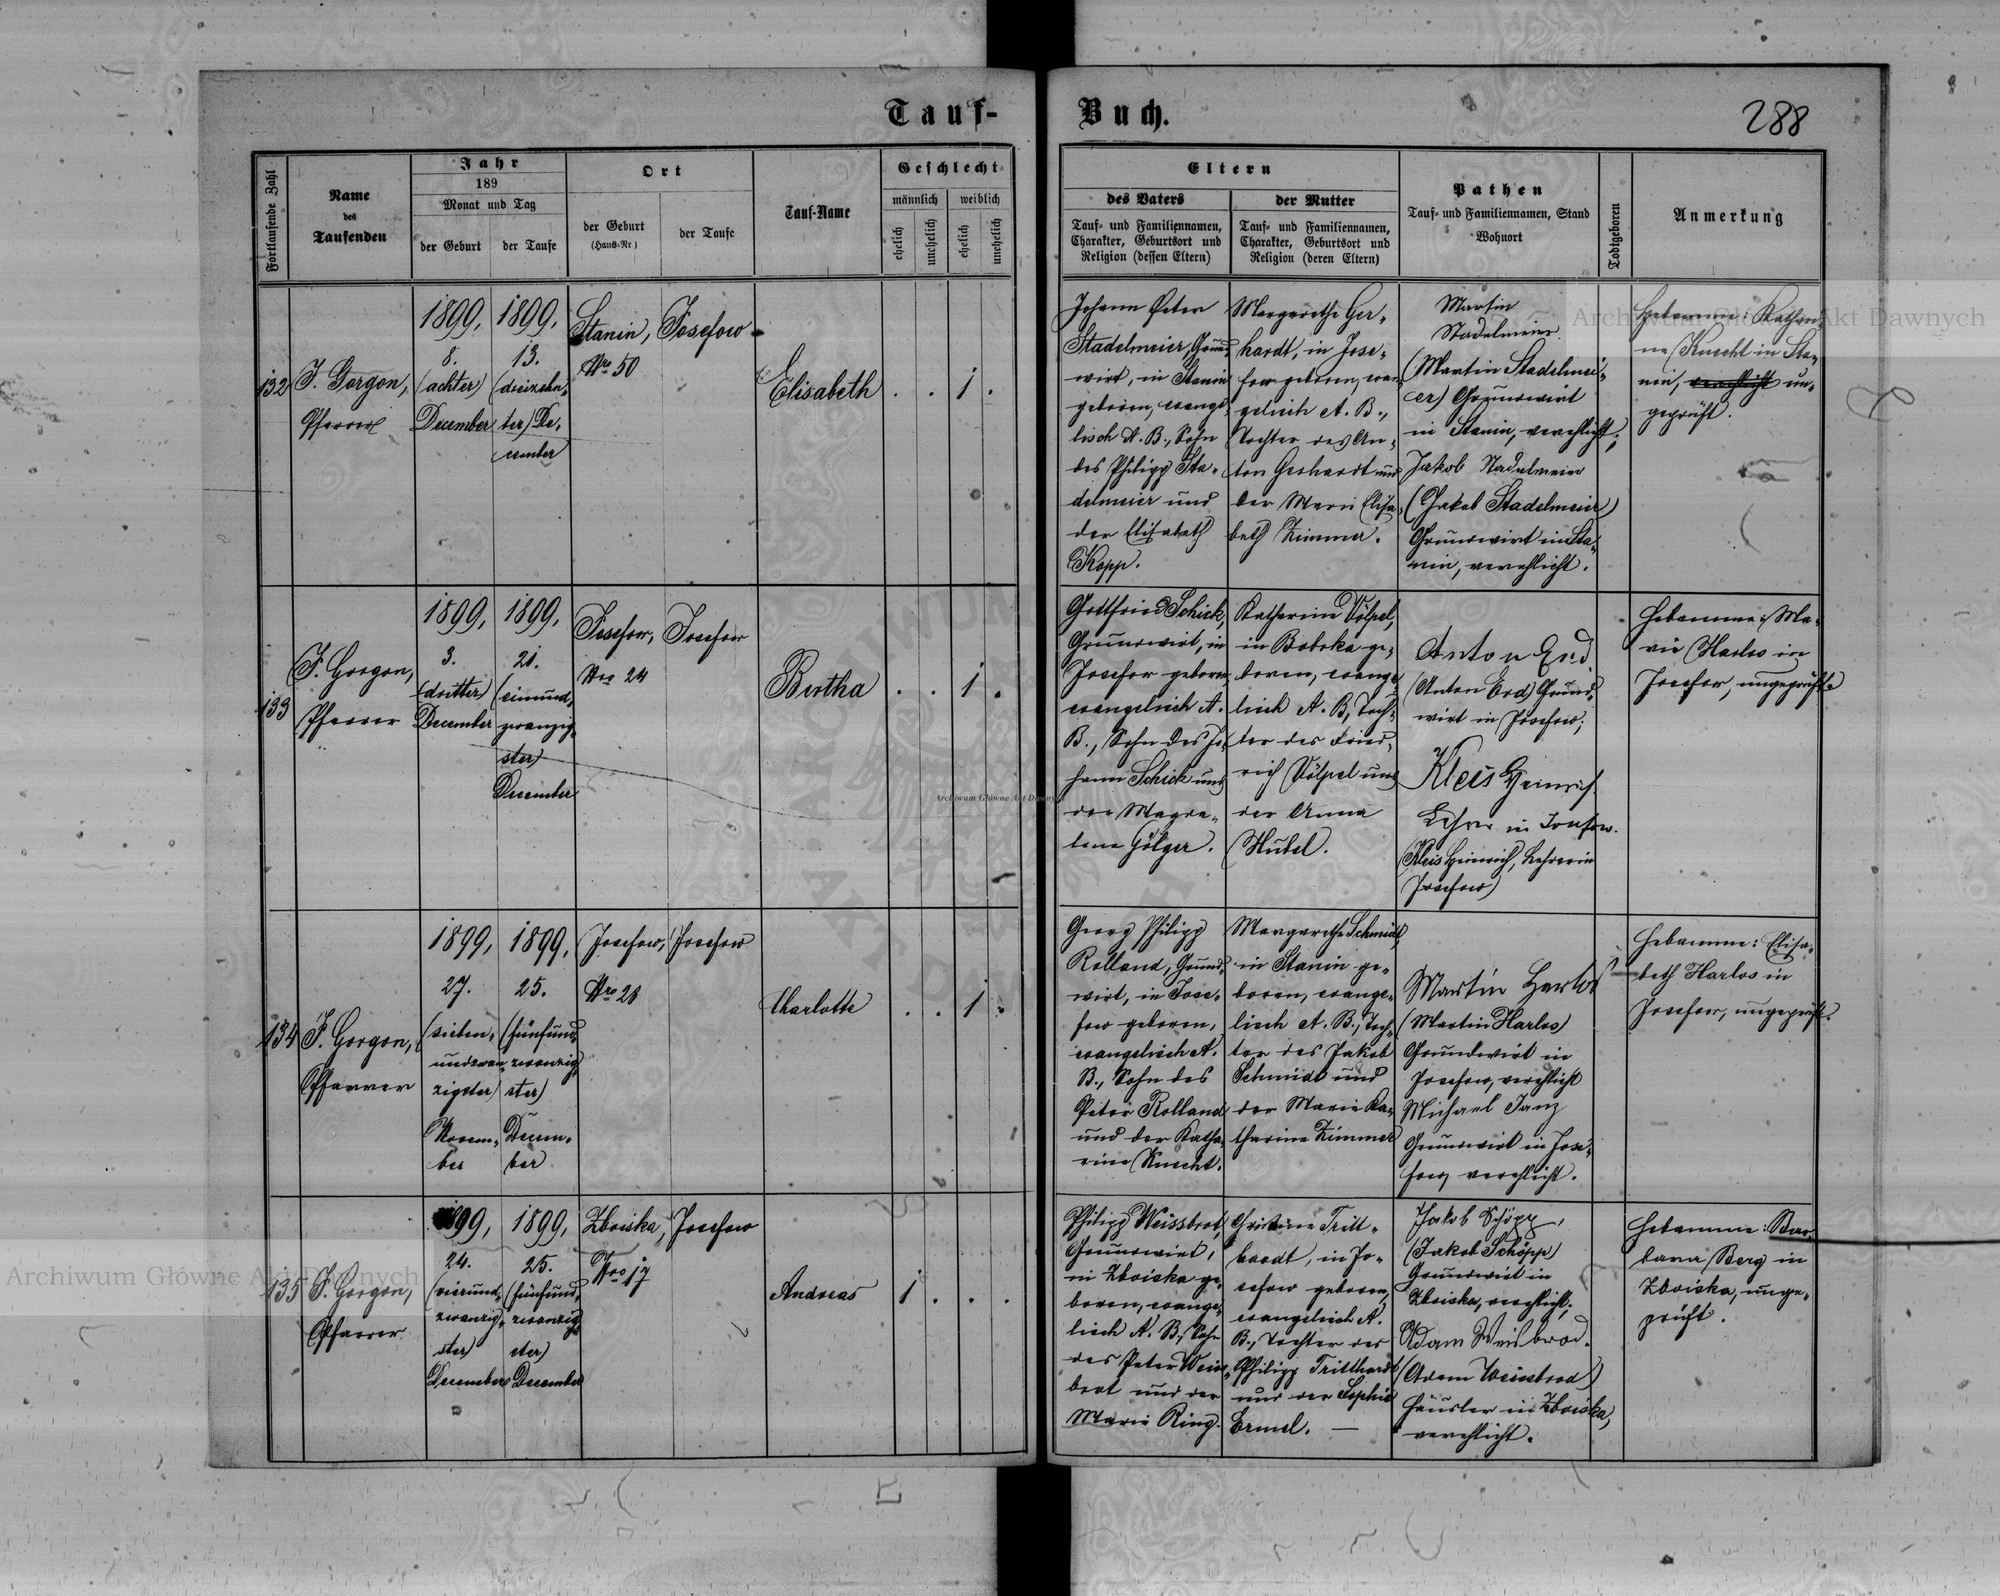 Tauf-
Buch.
288
Fortlaufende Zahl
Name
des
Taufenden
Jahr
189
Monat und Tag
der Geburt
der Taufe
Ort
der Geburt
(Haus-Nr.)
der Taufe
Tauf-Name
Geschlecht
männlich
weiblich
ehelich
unehelich
ehelich
unehelich
Eltern
des Vaters
Tauf- und Familiennamen,
Charakter, Geburtsort und
Religion (dessen Eltern)
der Mutter
Tauf- und Familiennamen,
Charakter, Geburtsort und
Religion (deren Eltern)
Pathen
Tauf- und Familiennamen, Stand
Wohnort
Todtgeboren
Anmerkung
132
J. Gorgon,
Pfarrer
1899,
8.
(achter)
December
1899,
13.
(dreizehn-
ter) De-
cember
Stanin,
Nro 50
Josefow
Elisabeth
. . 1 .
Johann Peter
Stadelmeier, Grund-
wirt, in Stanin
geboren, evange-
lisch A. B., Sohn
des Philipp Sta-
delmeier und
der Elisabeth
Kopp.
Margarethe Ger-
hardt, in Jose-
fow geboren, evan-
gelisch A. B.,
Tochter des An-
ton Gerhardt und
der Marie Elisa-
beth Zimmer.
Martin
Stadelmeier
(Martin Stadelmei-
er) Grundwirt
in Stanin, verehlicht;
Jakob Stadelmeier
(Jakob Stadelmeier)
Grundwirt in Sta-
nin, verehlicht.
Hebamme: Kathari-
ne Knecht in Sta-
nin, verehlicht un-
geprüft.
133
J. Gorgon,
Pfarrer
1899,
3.
(dritter)
December
1899,
21.
(einund-
zwanzig-
ster)
December
Josefow,
Nro 24
Josefow
Bertha
. . 1 .
Gottfried Schick,
Grundwirt, in
Josefow geboren,
evangelisch A.
B., Sohn des Jo-
hann Schick und
der Magda-
lena Hölger.
Katharina Völpel,
in Bobrka ge-
boren, evange-
lisch A. B., Toch-
ter des Fried-
rich Völpel und
der Anna
Hubel.
Anton Erd
(Anton Erd) Grund-
wirt in Josefow;
Kleis Heinrich
Lehrer in Josefow.
(Kleis Heinrich, Lehrer in
Josefow)
Hebamme: Ma-
rie Harlos in
Josefow, ungeprüft.
134
J. Gorgon,
Pfarrer
1899,
27.
(sieben-
undzwan-
zigster)
Novem-
ber
1899,
25.
(fünfund-
zwanzig-
ster)
Decem-
ber
Josefow,
Nro 28
Josefow
Charlotte
. . 1 .
Georg Philipp
Rolland, Grund-
wirt, in Jose-
fow geboren,
evangelisch A.
B., Sohn des
Peter Rolland
und der Katha-
rine Knecht.
Margarethe Schmidt,
in Stanin ge-
boren, evange-
lisch A. B., Toch-
ter des Jakob
Schmidt und
der Marie Ka-
tharine Zimmer
Martin Harlos
(Martin Harlos)
Grundwirt in
Josefow, verehlicht
Michael Janz
Grundwirt in Jose-
fow, verehlicht.
Hebamme: Elisa-
beth Harlos in
Josefow, ungeprüft.
135
J. Gorgon,
Pfarrer
1899,
24.
(vierund-
zwanzig-
ster)
December
1899,
25.
(fünfund-
zwanzig-
ster)
December
Zboiska,
Nro 17
Josefow
Andreas
1 . . .
Philipp Weissbrot,
Grundwirt,
in Zboiska ge-
boren, evange-
lisch A. B., Sohn
des Peter Weiss-
brot und der
Marie Ring.
Christine Tritt-
hardt, in Jo-
sefow geboren,
evangelisch A.
B., Tochter des
Philipp Tritthardt
und der Sophie
Ermel. —
Jakob Schöpp,
(Jakob Schöpp)
Grundwirt in
Zboiska, verehlicht;
Adam Weisbrod.
(Adam Weissbrod)
Häusler in Zboiska,
verehlicht.
Hebamme: Bar-
bara Berg in
Zboiska, unge-
prüft.
Archiwum Główne Akt Dawnych
Archiwum Główne Akt Dawnych
Archiwum Główne Akt Dawnych